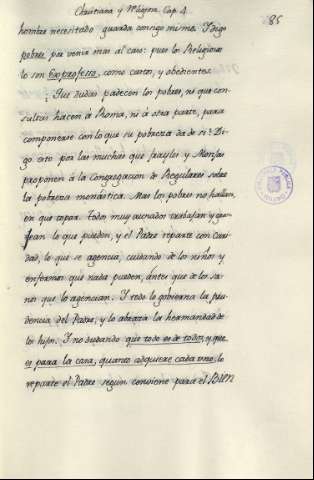 Christiana y Religiosa. Cap. 4.
85
hombre necesitado guarda consigo mismo. Y digo
pobres, por venir mas al caso: pues los Religiosos
lo son Exprofesso, como castos, y obedientes.
¿Que dudas padecen los pobres, ni que con-
sultas hacen á Roma, ni á otra parte, para
componerse con lo que su pobreza da de sí? Di-
go esto por las muchas que frayles y Monjas
proponen á la Congregacion de Regulares sobre
la pobreza monastica. Mas los pobres no hallan
en que topar. Todos muy aunados trabajan y gran-
jean lo que pueden, y el Padre reparte con cari-
dad, lo que se agencia, cuidando de los niños y
enfermos que nada pueden, antes que de los sa-
nos que lo agencian. Y todo lo gobierna la pru-
dencia del Padre, y lo abraza la hermandad de
los hijos. Y no dudando que todo es de todos, y que
es para la casa, quanto adquiere cada uno, lo
reparte el Padre segun conviene para el BIEN